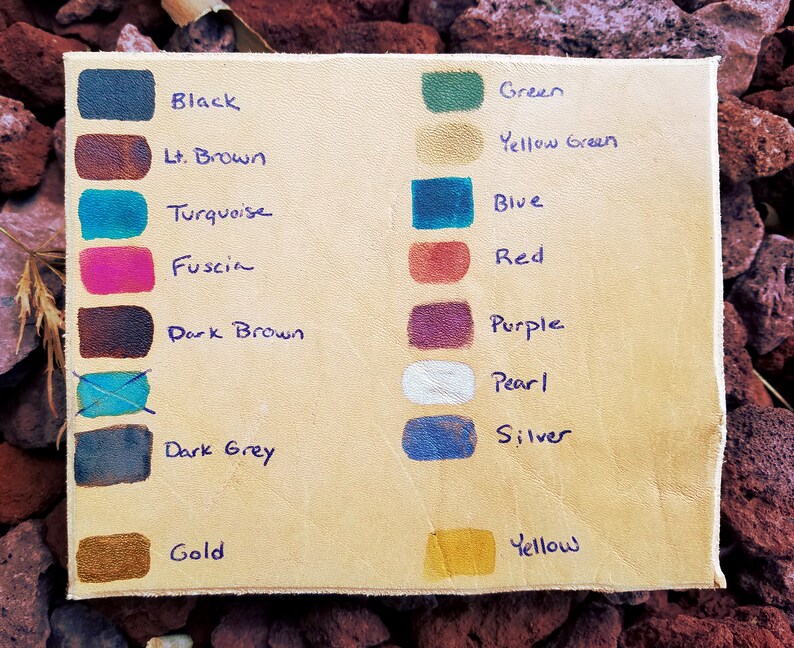 Black
Lt. Brown
Turquoise
Fuscia
Dark Brown
Dark Grey
Gold
Green
Yellow Green
Blue
Red
Purple
Pearl
Silver
Yellow